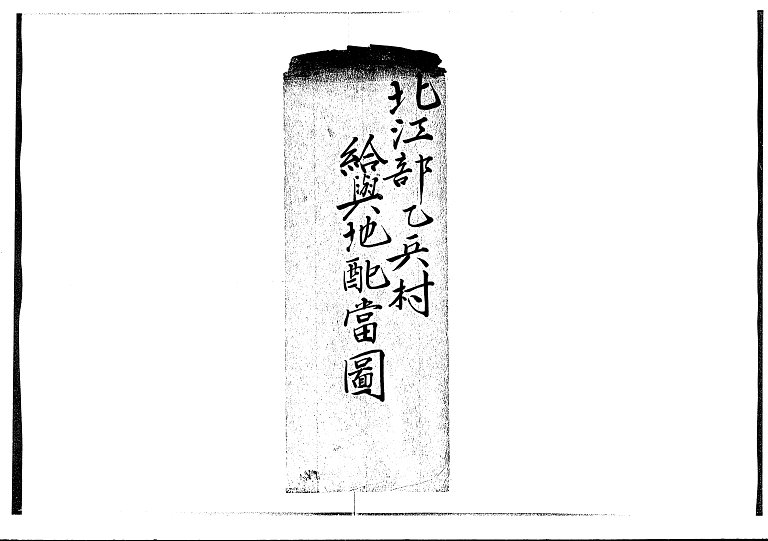 北江部乙兵村
給與地配當圖